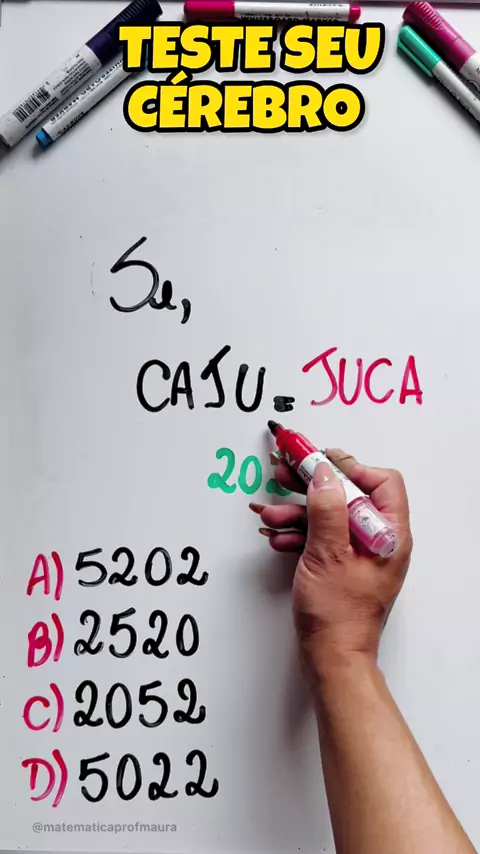 TESTE SEU
CÉREBRO
Se,
CAJU = JUCA
20
A) 5202
B) 2520
C) 2052
D) 5022
@matematicaprofmaura